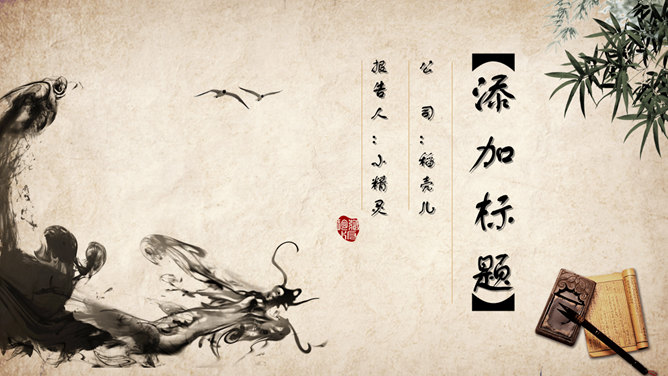 【添加标题】
公 司：稻壳儿
报告人：小精灵